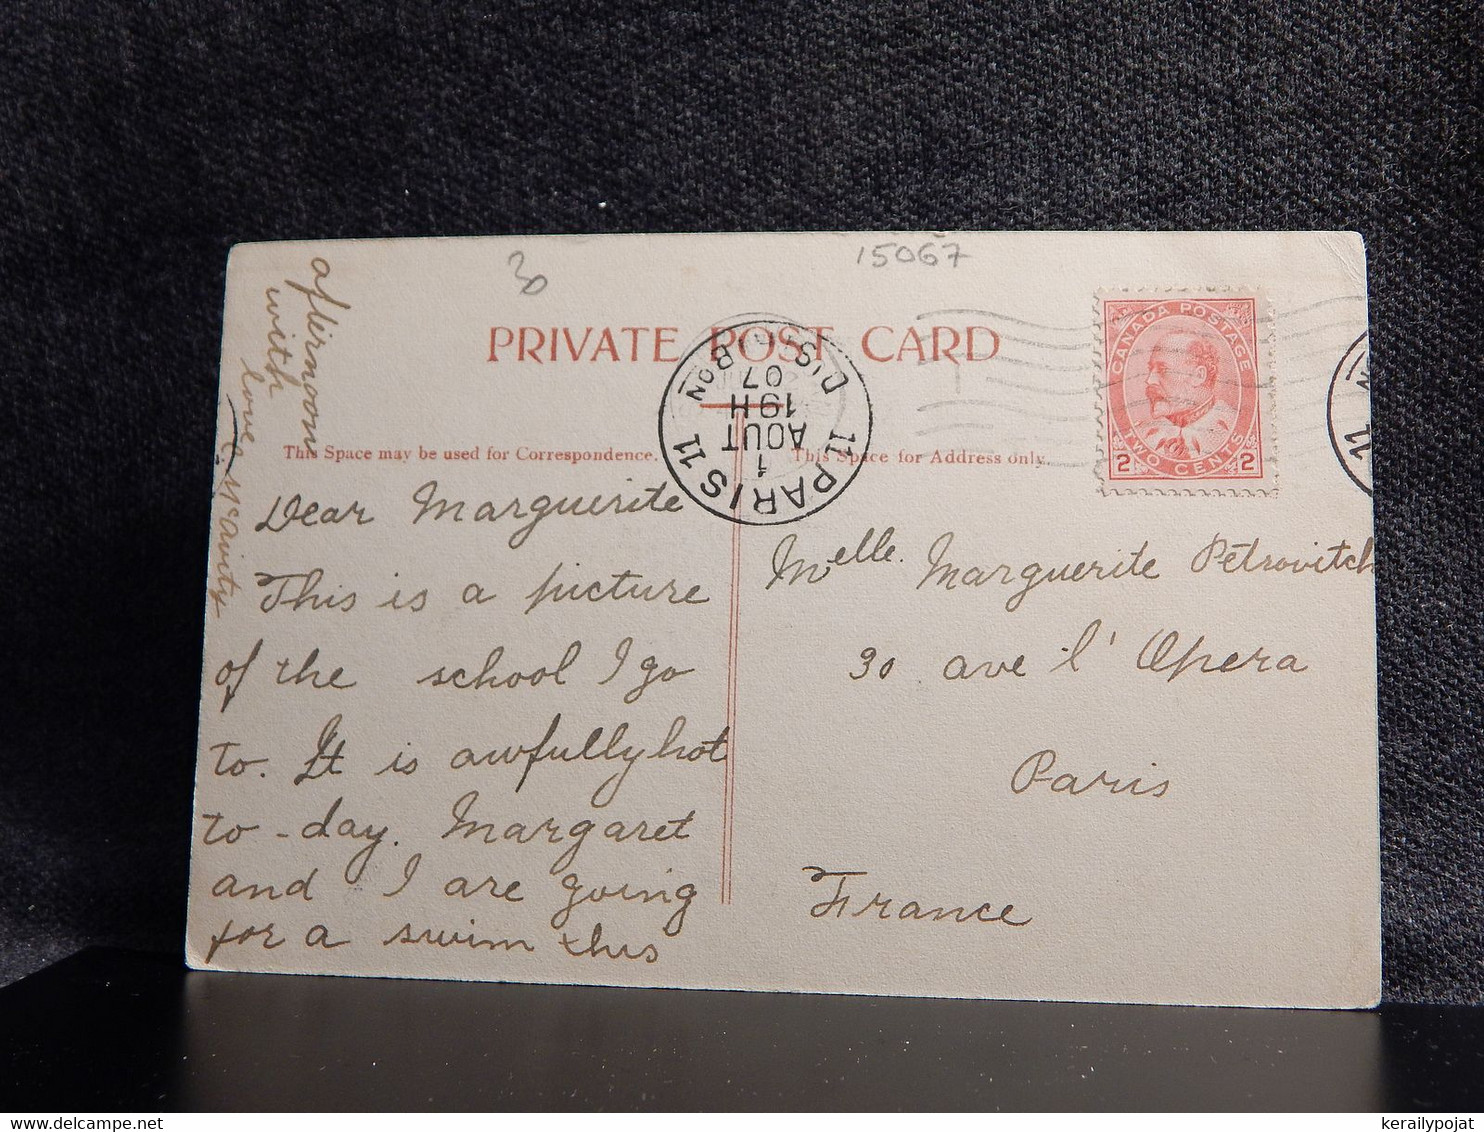 30
15067
PRIVATE POST CARD
CANADA POSTAGE
2 TWO CENTS 2
PARIS 11
1
AOUT
19H
07
DISTRIBON
11
11
This Space may be used for Correspondence.
This Space for Address only.
Dear Marguerite
This is a picture
of the school I go
to. It is awfully hot
to-day. Margaret
and I are going
for a swim this
afternoon
with
love
McAvity
Melle. Marguerite Petrovitch
30 ave l'Opera
Paris
France
© kerallypojat